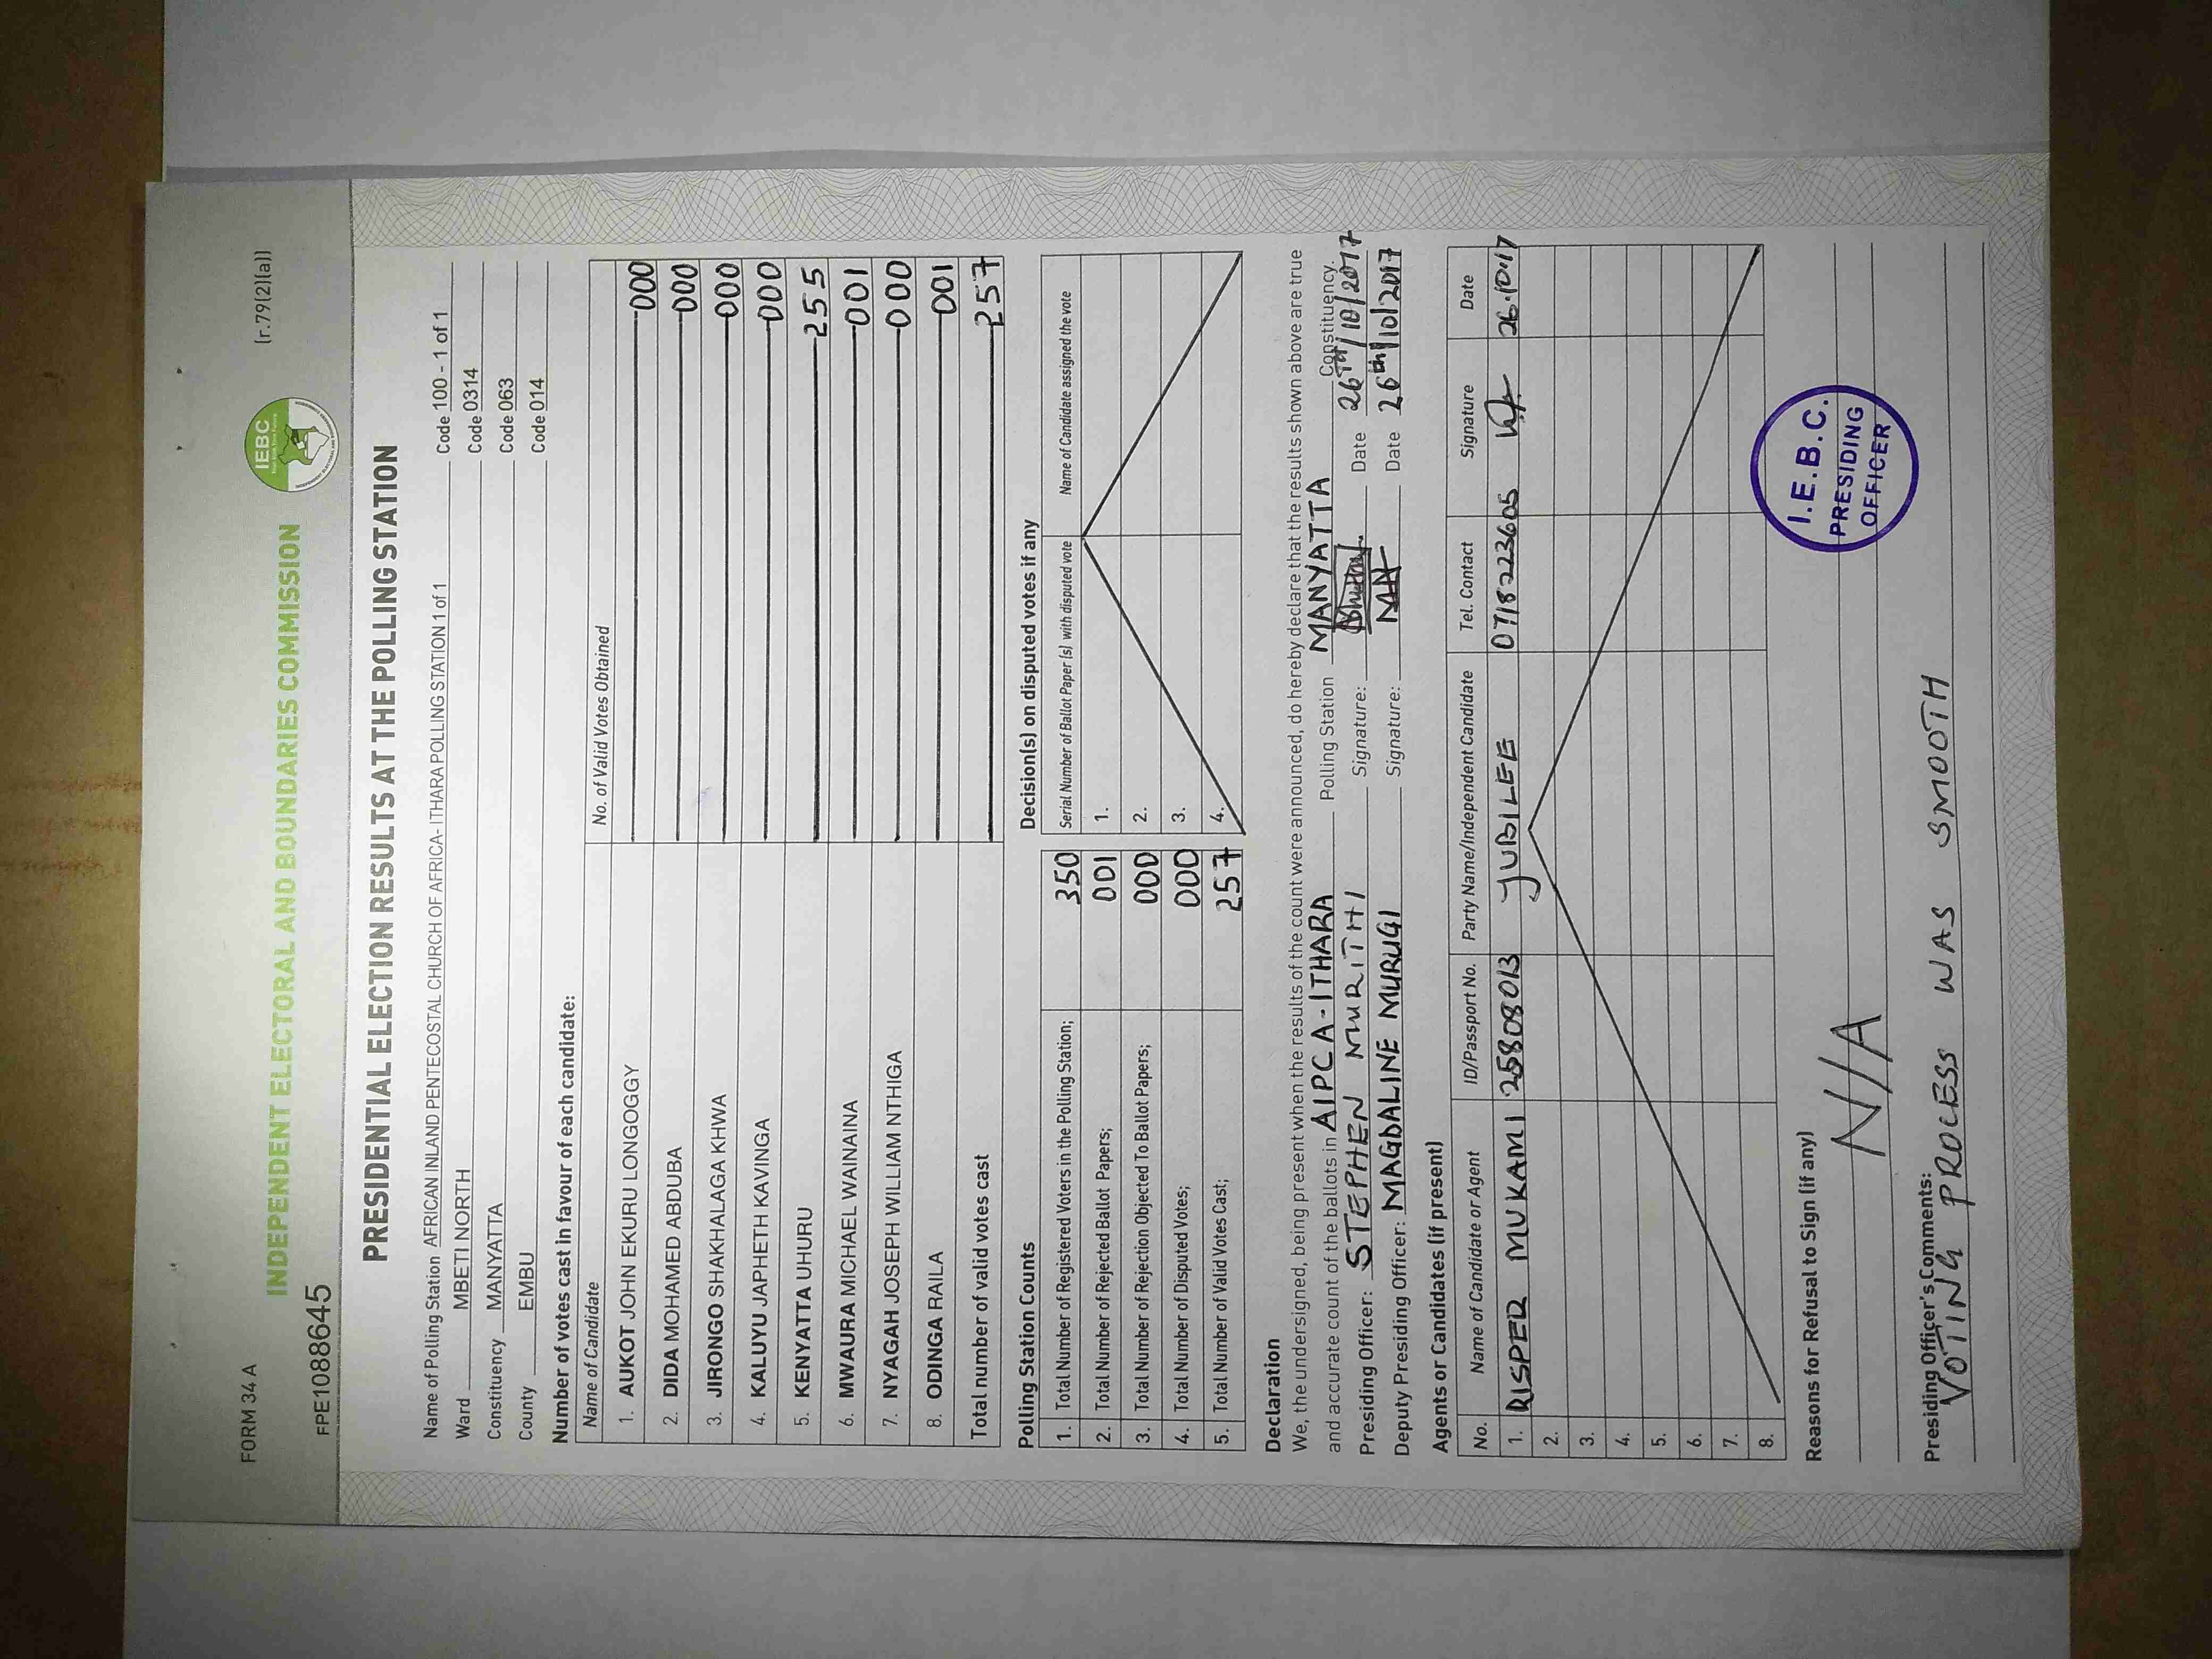 FORM 34 A
(r.79(2)(a))
IEBC
INDEPENDENT ELECTORAL AND BOUNDARIES COMMISSION
FPE1088645
PRESIDENTIAL ELECTION RESULTS AT THE POLLING STATION
Name of Polling Station AFRICAN INLAND PENTECOSTAL CHURCH OF AFRICA- ITHARA POLLING STATION 1 of 1 Code 100 - 1 of 1
Ward MBETI NORTH Code 0314
Constituency MANYATTA Code 063
County EMBU Code 014
Number of votes cast in favour of each candidate:
Name of Candidate No. of Valid Votes Obtained
1. AUKOT JOHN EKURU LONGOGGY 000
2. DIDA MOHAMED ABDUBA 000
3. JIRONGO SHAKHALAGA KHWA 000
4. KALUYU JAPHETH KAVINGA 000
5. KENYATTA UHURU 255
6. MWAURA MICHAEL WAINAINA 001
7. NYAGAH JOSEPH WILLIAM NTHIGA 000
8. ODINGA RAILA 001
Total number of valid votes cast 257
Polling Station Counts
1. Total Number of Registered Voters in the Polling Station; 350
2. Total Number of Rejected Ballot Papers; 001
3. Total Number of Rejection Objected To Ballot Papers; 000
4. Total Number of Disputed Votes; 000
5. Total Number of Valid Votes Cast; 257
Decision(s) on disputed votes if any
Serial Number of Ballot Paper (s) with disputed vote Name of Candidate assigned the vote
1.
2.
3.
4.
Declaration
We, the undersigned, being present when the results of the count were announced, do hereby declare that the results shown above are true
and accurate count of the ballots in AIPCA-ITHARA Polling Station MANYATTA Constituency.
Presiding Officer: STEPHEN MURITHI Signature: Date 26TH/10/2017
Deputy Presiding Officer: MAGDALINE MURUGI Signature: Date 26th/10/2017
Agents or Candidates (if present)
No. Name of Candidate or Agent ID/Passport No. Party Name/Independent Candidate Tel. Contact Signature Date
1. RISPER MUKAMI 25808013 JUBILEE 0718223605 26.10.17
2.
3.
4.
5.
6.
7.
8.
Reasons for Refusal to Sign (if any)
N/A
I.E.B.C.
PRESIDING
OFFICER
Presiding Officer's Comments:
VOTING PROCESS WAS SMOOTH